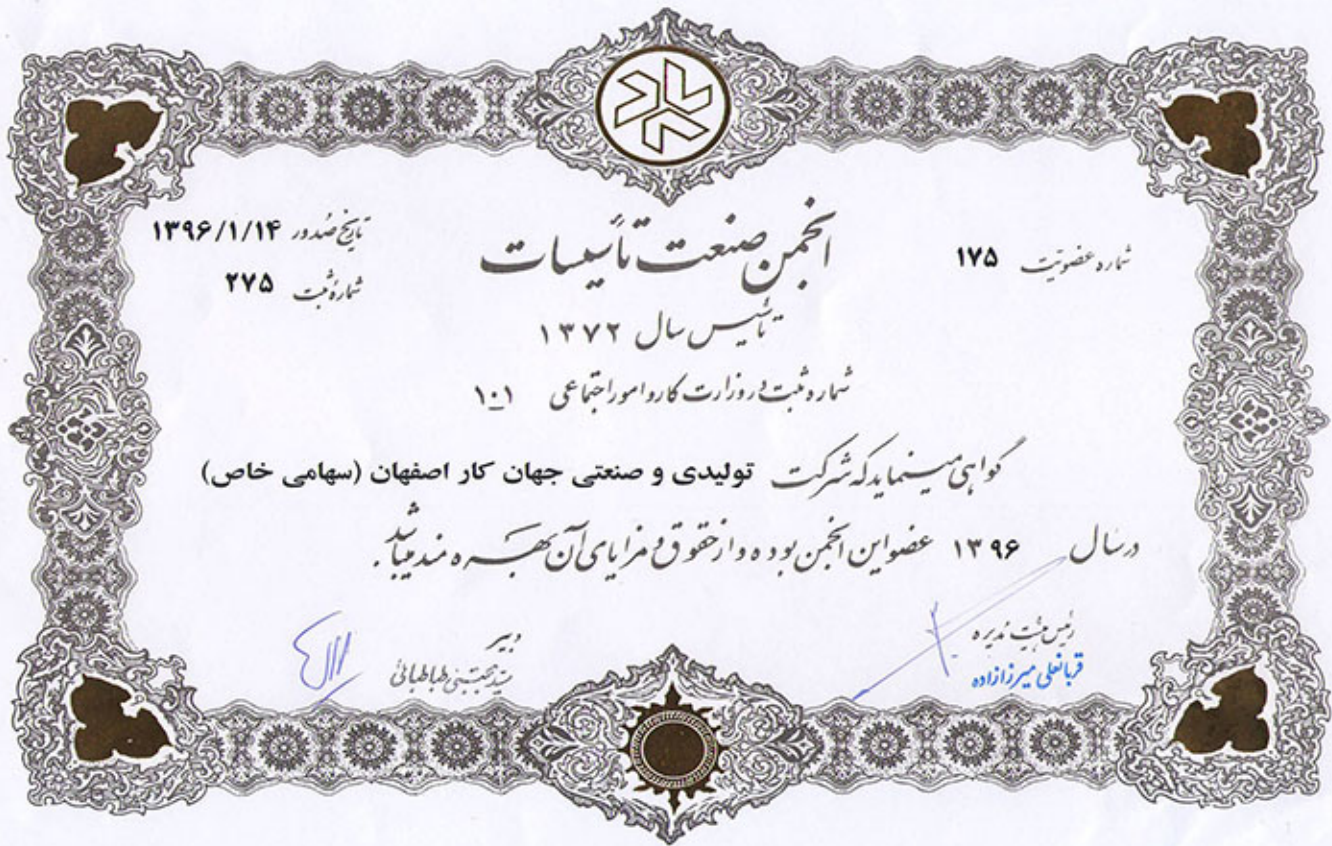 شماره عضویت ۱۷۵
تاریخ صدور ۱۳۹۶/۱/۱۴
شماره ثبت ۲۷۵
انجمن صنعت تأسیسات
تأسیس سال ۱۳۷۲
شماره ثبت در وزارت کار و امور اجتماعی ۱۰۱
گواهی مینماید که شرکت تولیدی و صنعتی جهان کار اصفهان (سهامی خاص)
در سال ۱۳۹۶ عضو این انجمن بوده و از حقوق و مزایای آن بهره مند میباشد.
رئیس هیئت مدیره
قربانعلی میرزازاده
دبیر
سید مجتبی طباطبائی